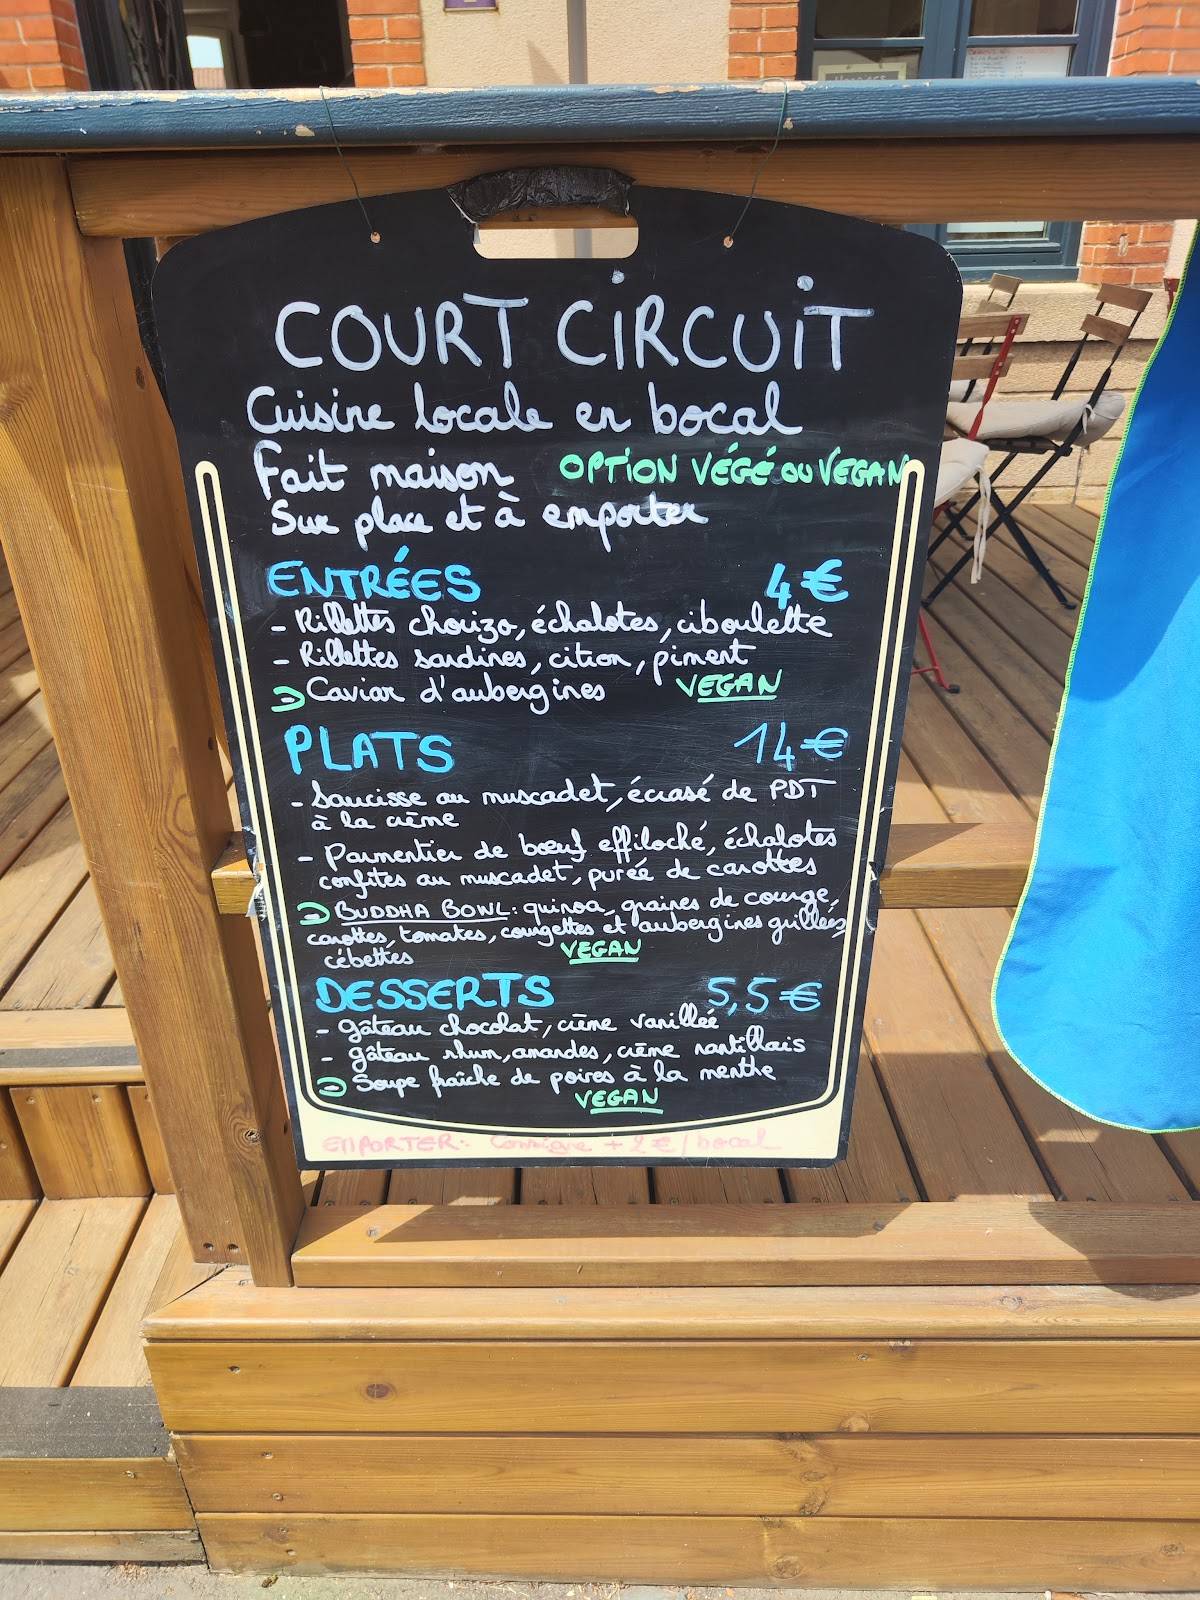 COURT CIRCUIT
Cuisine locale en bocal
Fait maison OPTION VÉGÉ OU VEGAN
Sur place et à emporter
ENTRÉES 4€
- Rillettes chorizo, échalotes, ciboulette
- Rillettes sardines, citron, piment
Caviar d'aubergines VEGAN
PLATS 14€
- Saucisse au muscadet, écrasé de PDT
à la crème
- Parmentier de bœuf effiloché, échalotes
confites au muscadet, purée de carottes
BUDDHA BOWL: quinoa, graines de courge,
carottes, tomates, courgettes et aubergines grillées,
cébettes VEGAN
DESSERTS 5,5€
- gâteau chocolat, crème vanillée
- gâteau rhum, amandes, crème nantillais
Soupe fraîche de poires à la menthe
VEGAN
EMPORTER: Consigne + 2€/bocal